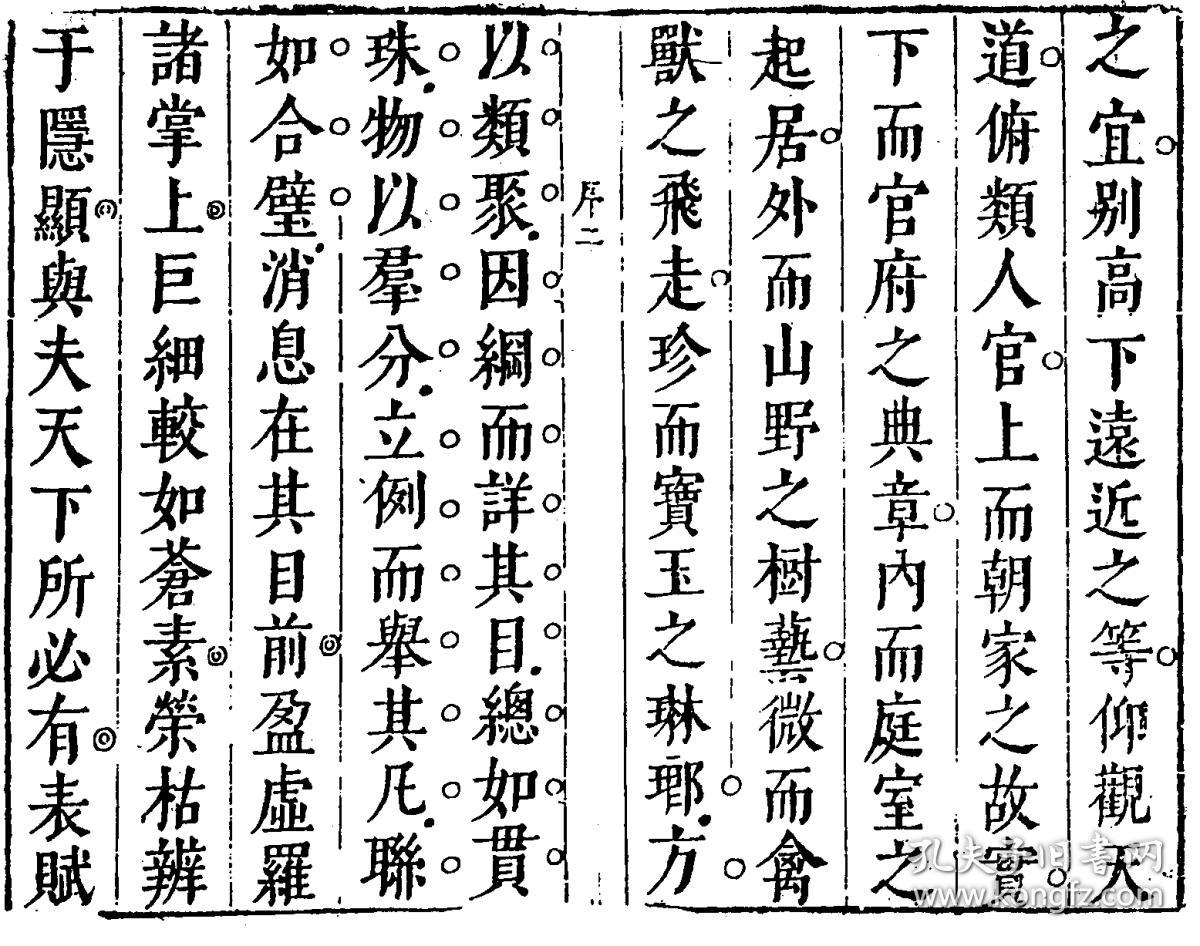 之宜别高下遠近之等仰觀天
道俯類人官上而朝家之故實
下而官府之典章內而庭室之
起居外而山野之樹藝微而禽
獸之飛走珍而寶玉之琳瑯方
序二
以類聚因綱而詳其目總如貫
珠物以羣分立例而舉其凡聯
如合璧消息在其目前盈虛羅
諸掌上巨細較如蒼素榮枯辨
于隱顯與夫天下所必有表賦
孔夫子旧書网
www.kongfz.com